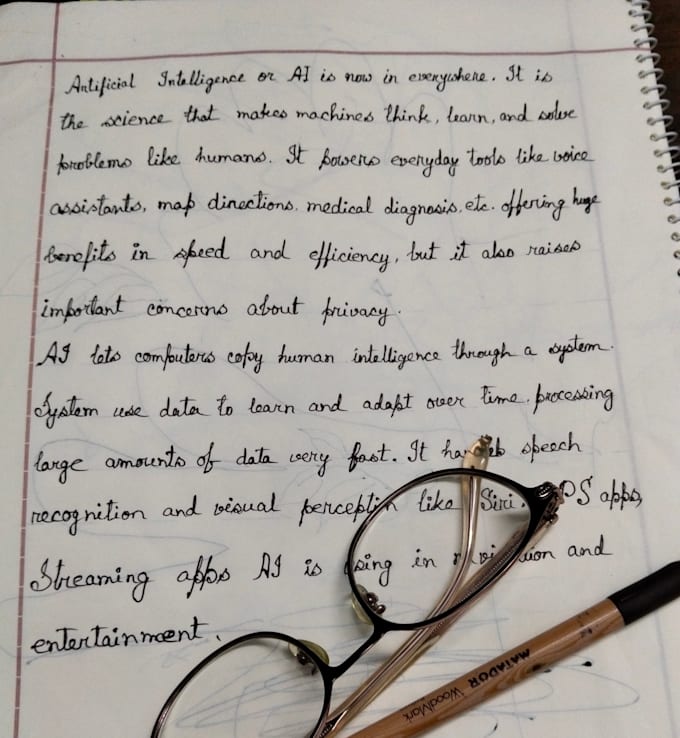 Artificial Intelligence or AI is now in everywhere. It is
the science that makes machines think, learn, and solve
problems like humans. It powers everyday tools like voice
assistants, map directions. medical diagnosis, etc. offering huge
benefits in speed and efficiency, but it also raises
important concerns about privacy.
AI lets computers copy human intelligence through a system.
System use data to learn and adapt over time. processing
large amounts of data very fast. It speech
recognition and visual perceptin like Siri. apps,
Streaming apps AI is in and
entertainment.
MATADOR
WoodMark